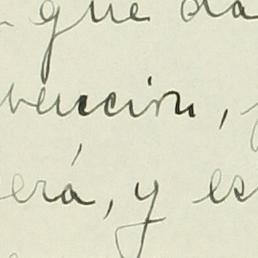 que da
vención,
erá, y es